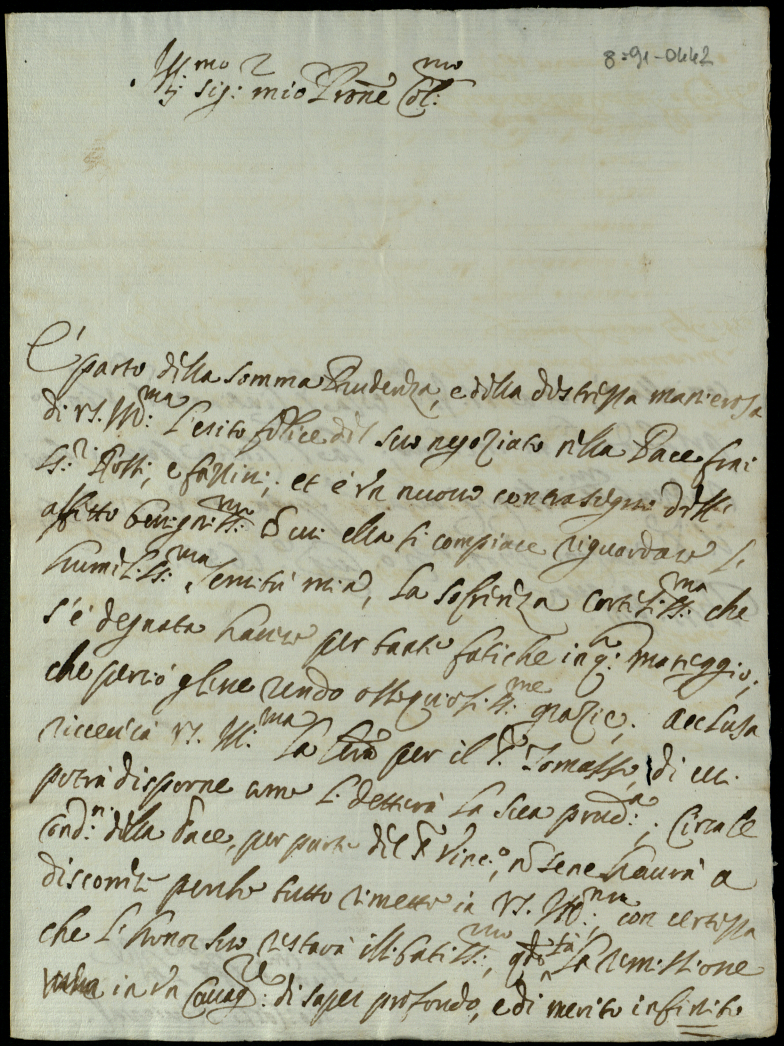 8=91-0442
Ill:mo Sig:r mio Prone Col:mo
È parto della somma Prudenza, e della destrezza manierosa
di VS. Ill:ma L'esito felice del suo negoziato nella Pace frai
SS:ri Rotti, e ; et è un nuovo contrasegno dell'
affetto benigniss:mo con cui ella si compiace riguardare la
humiliss:ma servitù mia, la sofrenza cortesiss:ma che
s'è degnata havere per tante fatiche in q:to maneggio;
che perciò gliene rendo ossequiosiss:me grazie. acclusa
riceverà VS. Ill:ma La lra per il Sr. Tomasso, di cui
potrà disporne come Le detterà La sua prud:a; Circa le
cond:ni della Pace, per parte del Sr Vinc:o, nō se ne haurà a
discorrere perche tutto rimetto in VS. Ill:ma, con certezza
che L'honor suo resterà illibatiss:mo, qdo La remissione
in un Cavag:re di saper profondo, e di merito infinito